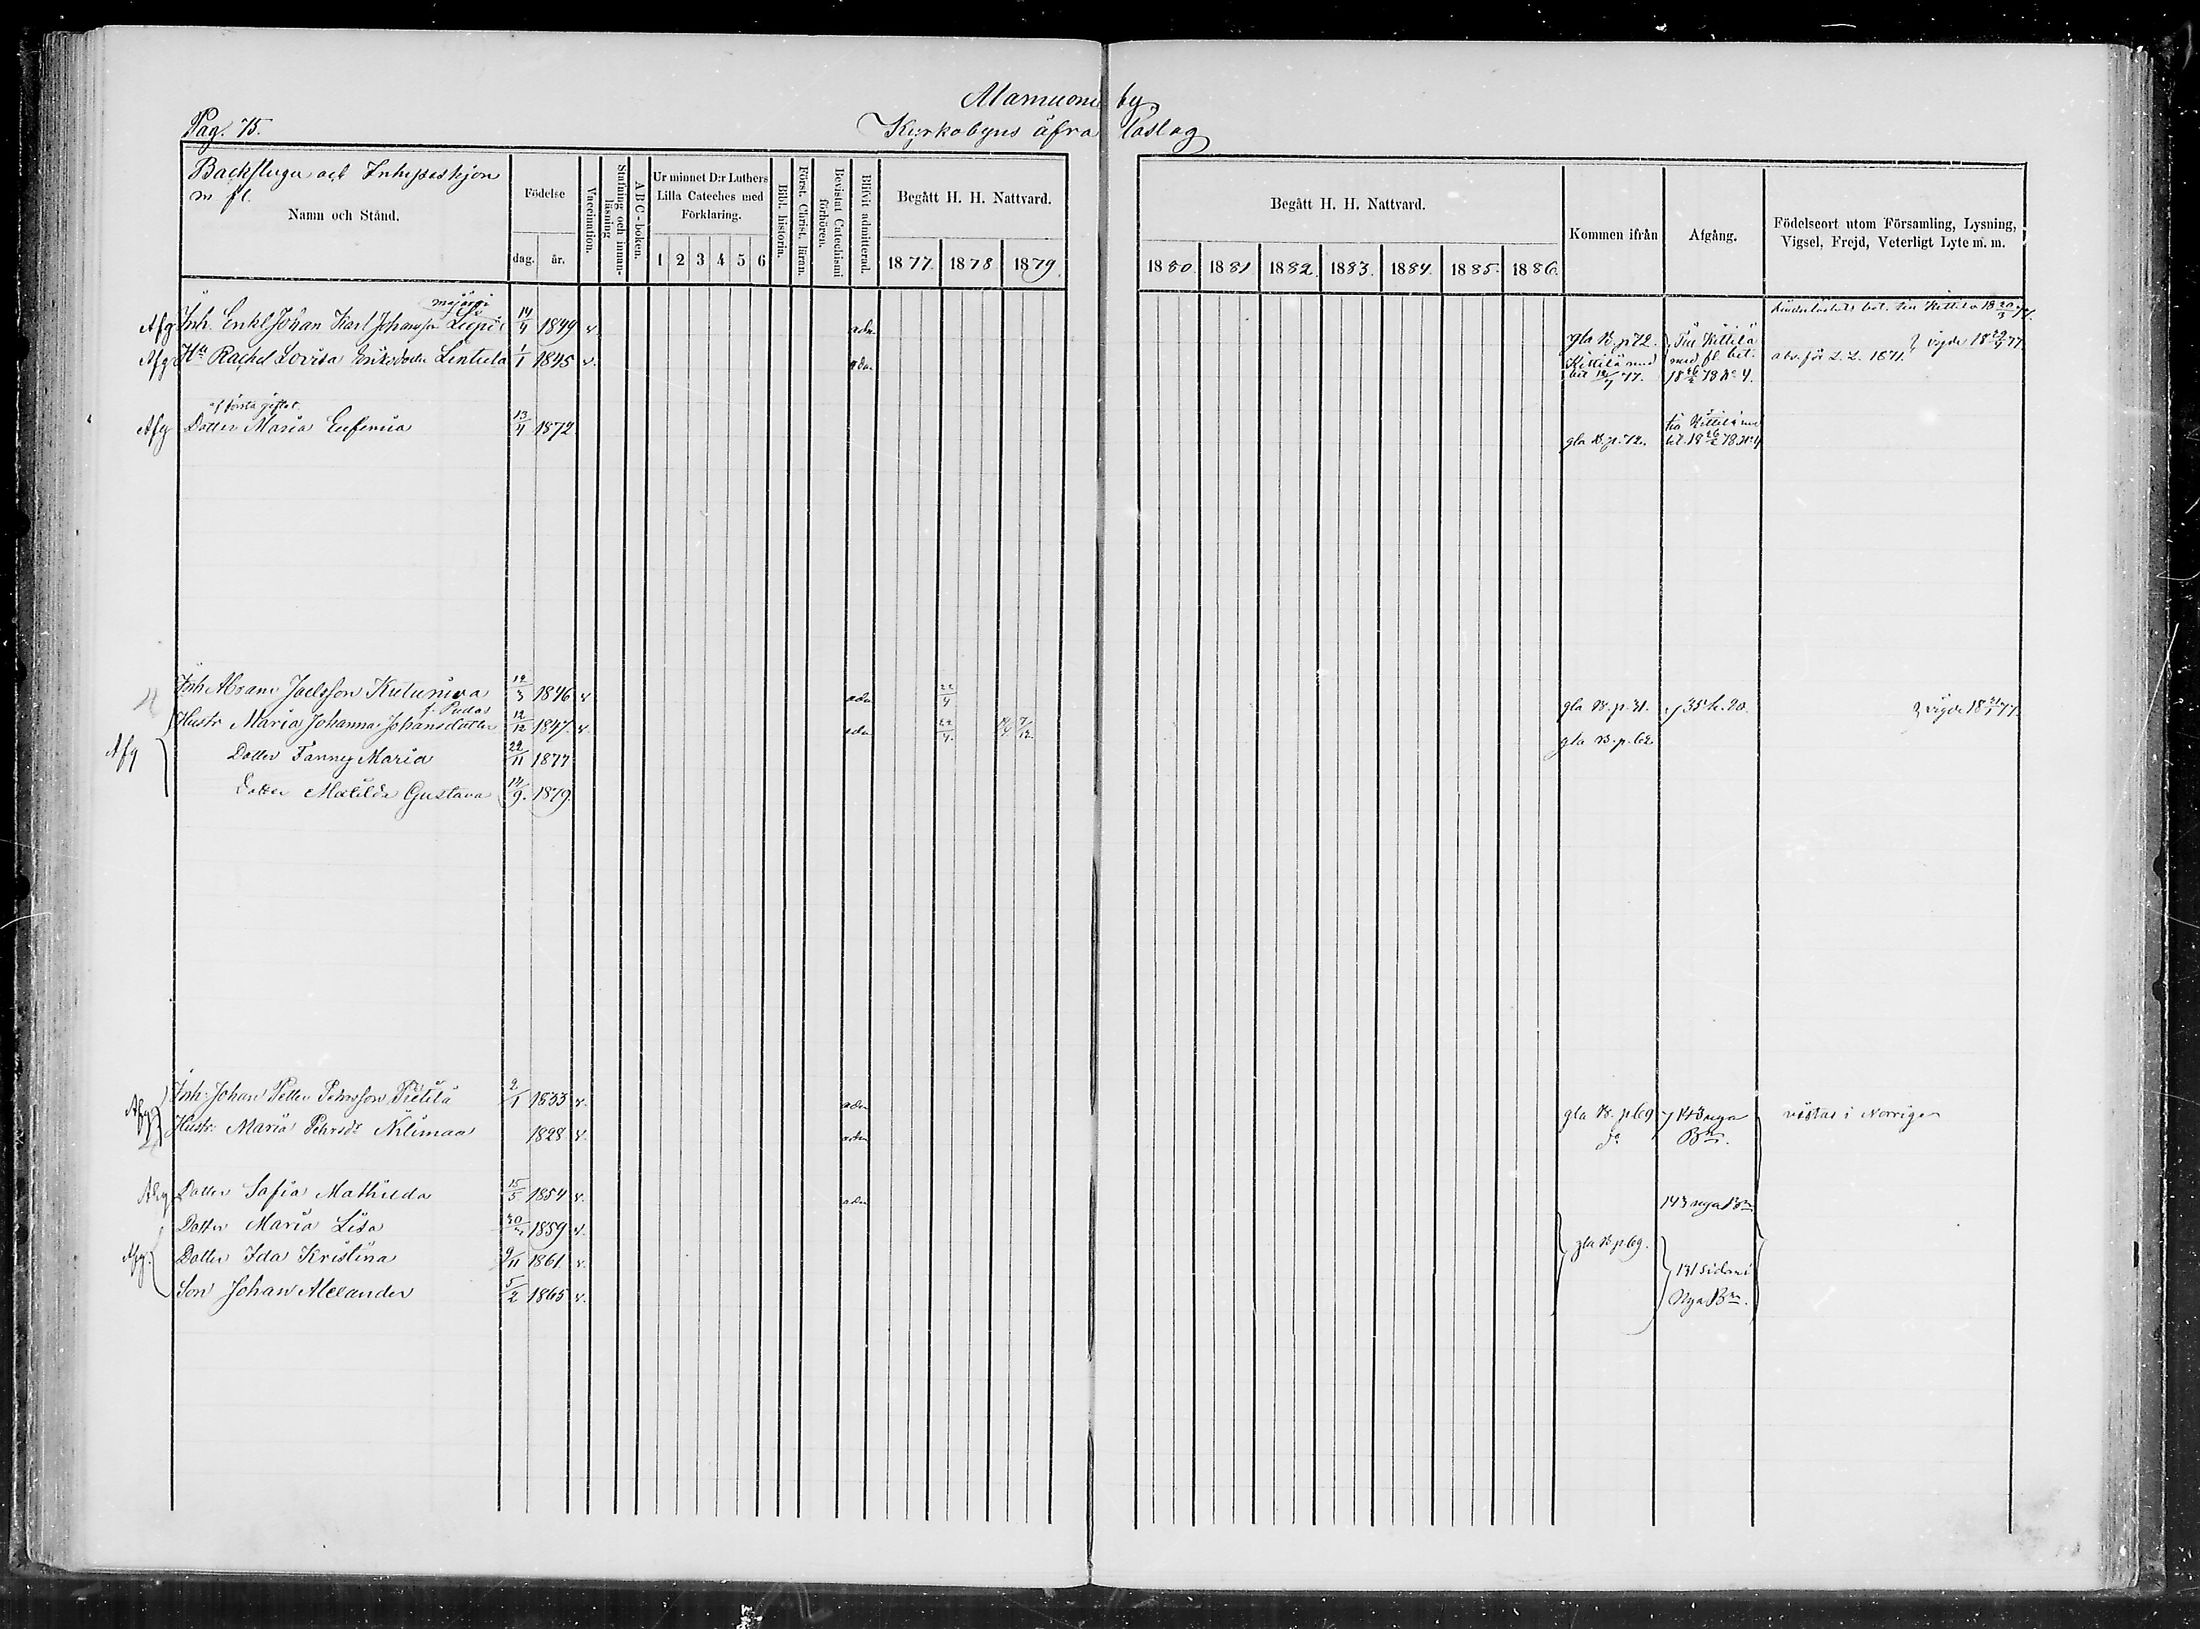 Alamuonio by
Pag. 75.
Kyrkobyns öfra Låslag
Backstugu och Inhyseshjon
m fl.
Namn och Stånd.
Födelse
dag.
år.
Vaccination.
Stafning och innanläsning
ABC-boken.
Ur minnet D:r Luthers
Lilla Cateches med
Förklaring.
1 2 3 4 5 6
Bibl. historia.
Först. Christ. läran.
Bevistat Catechismi förhören.
Blifvit admitterad.
Begått H. H. Nattvard.
1877. 1878 1879.
Begått H. H. Nattvard.
1880. 1881 1882. 1883. 1884. 1885. 1886.
Kommen ifrån
Afgång.
Födelseort utom Församling, Lysning,
Vigsel, Frejd, Veterligt Lyte m. m.
Afg Inh. Enkl Johan Karl Johansson 14/4 1849 v. adm gla B. p 72. Till Kittilä
hinderlöshets bet. till Kittilä 18 20/3 77.
Afg Hu Rachel Lovisa Eriksdotter Lintula 1/1 1845 v. adm Kittilä med bet 12/7 77. med fl. bet. 18 26/2 78 No 4. abs. för L. L. 1871. vigde 18 29/4 77
af första giftet
Afg Dotter Maria Eufemia 13/4 1872 gla B. p. 72. till Kittilä med bet. 18 26/2 78. No 4
Inh Abram Joelsson Kutuniva 12/3 1846 v. adm 22/4 gla B. p. 31. 35 h. 20. vigde 18 21/1 77.
f. Pudas
Hustr Maria Johanna Johansdotter 12/12 1847. v. adm 22/4. 14/4 7/12 gla B. p. 62
Afg Dotter Fanny Maria 22/11 1877
Dotter Matilda Gustava 14/9. 1879.
Afg Inh. Johan Petter Pehrsson Pietilä 2/1 1833 v. adm gla B. p 69 143 nya vistas i Norrige
Hustr. Maria Pehrsdr Niliman 1828 v. adm do Bn.
Afg Dotter Safia Mathilda 15/5 1854 v. adm 143 nya Bn
Dotter Maria Lisa 1859 v.
Afg. Dotter Ida Kristina 9/11 1861. v. gla B. p 69.
131 sidan i
Son Johan Alexander 5/2 1865 v. Nya Bn.